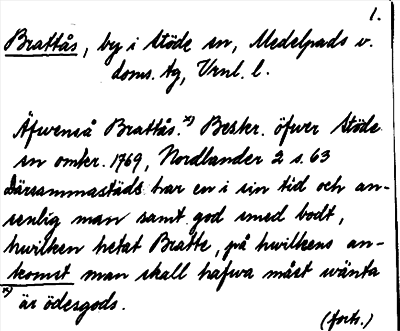 1.
Brattås, by i Stöde sn, Medelpads v.
doms. tg, Vrnl. l.
Äfwenså Brattås.x) Beskr. öfwer Stöde
sn omkr. 1769, Nordlander 2 s. 63
Därsammastäds har en i sin tid och an-
senlig man samt god smed bodt,
hwilken hetat Bratte, på hwilkens an-
komst man skall hafwa måst wänta
x) är ödesgods.
(forts.)